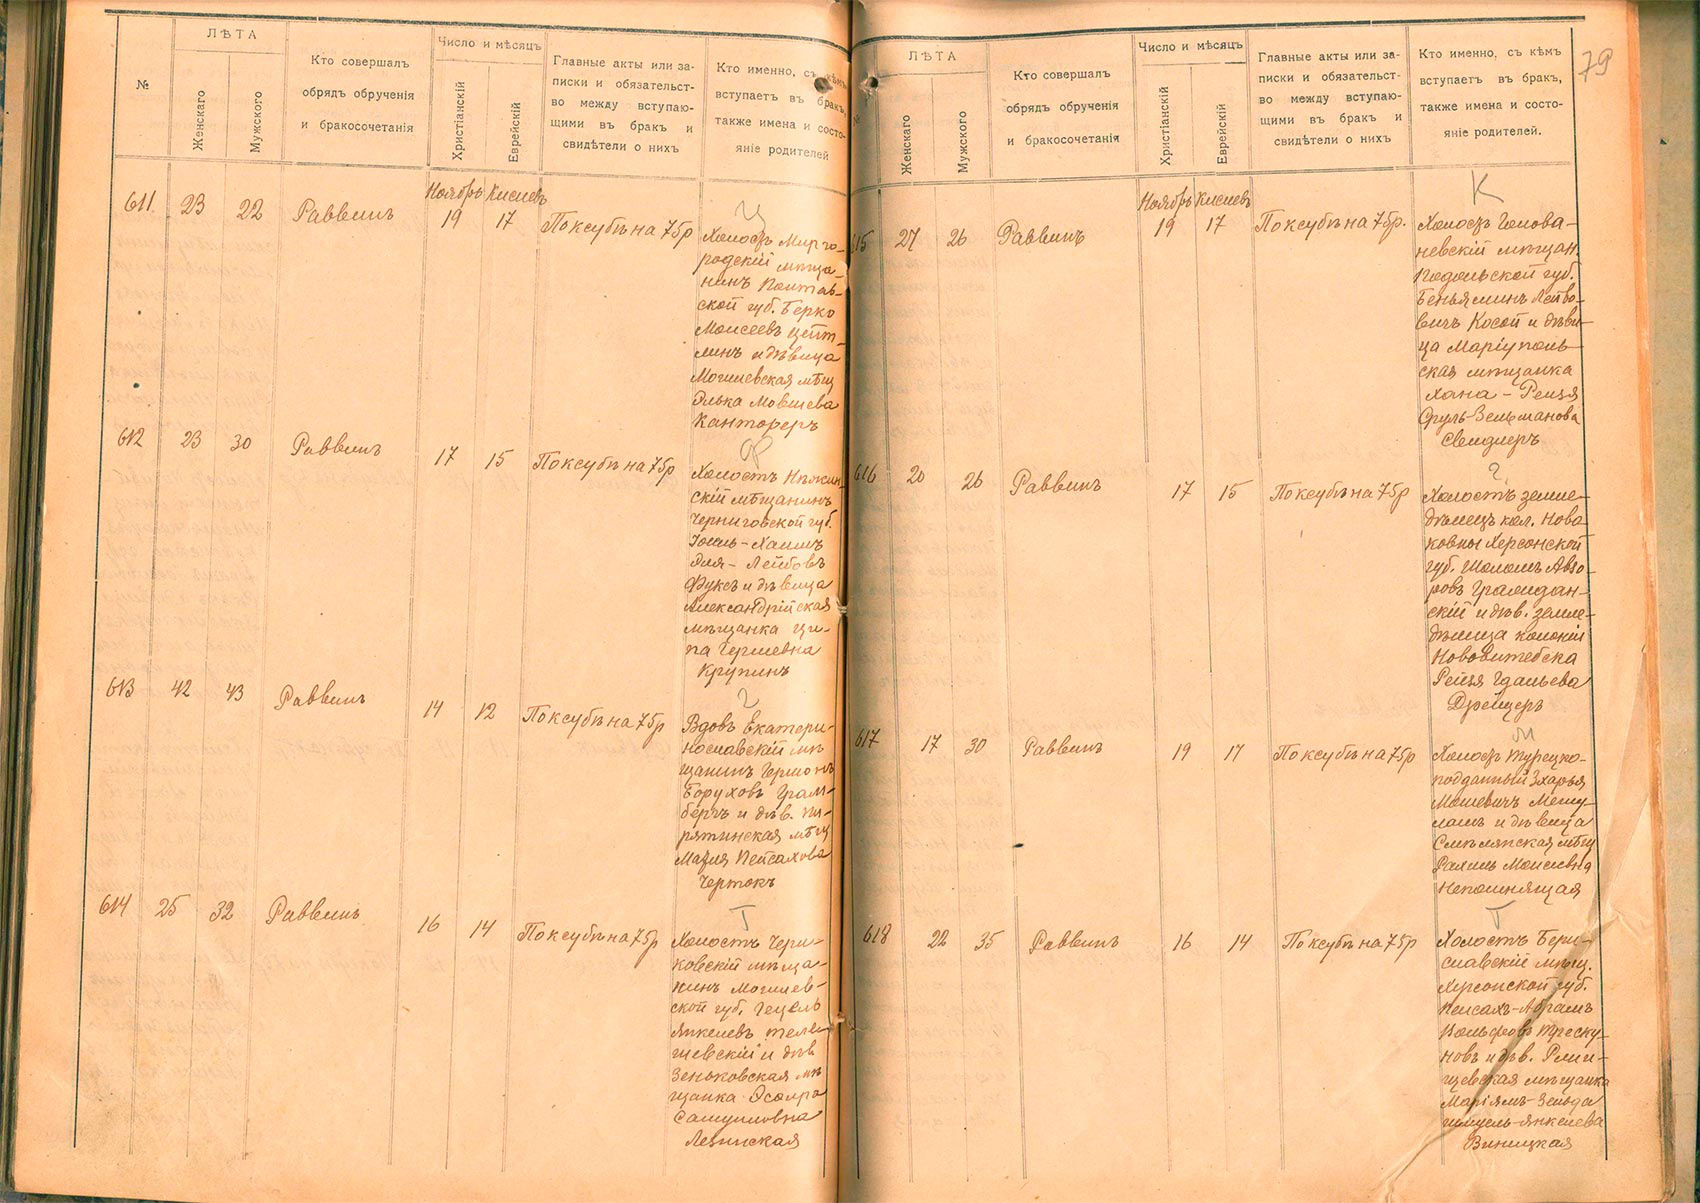 №
ЛѢТА
Женскаго
Мужского
Кто совершалъ
обрядъ обрученія
и бракосочетанія
Число и мѣсяцъ
Христіанскій
Еврейскій
Главные акты или за-
писки и обязательст-
во между вступаю-
щими въ бракъ и
свидѣтели о нихъ
Кто именно, съ кѣмъ
вступаетъ въ бракъ,
также имена и состо-
яніе родителей
Ноябрь Кислевъ
611 23 22 Раввинъ 19 17 По ксубѣ на 75р
Ц
Холостъ Мирго-
родскій мѣща-
нинъ Полтав-
ской губ. Берко
Моисеевъ Цейт-
линъ и дѣвица
Могилевская мѣщ
Элька Мовшева
Канторъ
612 23 30 Раввинъ 17 15 По ксубѣ на 75р
Ф
Холостъ Нѣжин-
скій мѣщанинъ
Черниговской губ.
Іосиль-Хаимъ
Эля-Лейбовъ
Фуксъ и дѣвица
Александрійская
мѣщанка Ци-
па Гершевна
Крупникъ
613 42 43 Раввинъ 14 12 По ксубѣ на 75р
Вдовъ Екатери-
нославскій мѣ
щанинъ
Боруховъ Грам-
бергъ и дѣв. Пи-
рятинская мѣщ
Марія Пейсахова
Чертокъ
614 25 32 Раввинъ 16 14 По ксубѣ на 75р
Т
Холостъ Чери-
ковскій мѣща-
нинъ Могилев-
ской губ. Гецель
Янкелевъ Теле-
шевскій и дѣв
Зеньковская мѣ
щанка
Самуиловна
Левинская
79
№
ЛѢТА
Женскаго
Мужского
Кто совершалъ
обрядъ обрученія
и бракосочетанія
Число и мѣсяцъ
Христіанскій
Еврейскій
Главные акты или за-
писки и обязательст-
во между вступаю-
щими въ бракъ и
свидѣтели о нихъ
Кто именно, съ кѣмъ
вступаетъ въ бракъ,
также имена и состо-
яніе родителей.
Ноябрь Кислевъ
615 27 26 Раввинъ 19 17 По ксубѣ на 75р.
К
Холостъ Голова-
невскій мѣщан.
Подольской губ.
Беньяминъ Лейбо-
вичъ Косой и дѣви-
ца Маріуполь-
ская мѣщанка
Хана-Рейзя
Сруль-Зельманова
Свидлеръ
616 20 26 Раввинъ 17 15 По ксубѣ на 75р
Холостъ земле-
дѣлецъ кол. Нова-
ковки Херсонской
губ. Шоломъ
ровъ Грамидан-
скій и дѣв. земле-
дѣлица колоніи
Нововитебска
Рейзя Гдальева
Дрейцеръ
617 17 30 Раввинъ 19 17 По ксубѣ на 75р
М
Холостъ Турецко-
подданный Зхарья
Мошевичъ Мешу-
ламъ и дѣвица
Смѣлянская мѣщ
Рахиль Моисеевна
Непомнящая
618 22 35 Раввинъ 16 14 По ксубѣ на 75р
Т
Холостъ Бери-
славскій мѣщ.
Херсонской губ.
Пейсахъ-Абрамъ
Вольфовъ Треску-
новъ и дѣв. Ржи-
щевская мѣщанка
Маріямъ-Зельда
Шмуель-Янкелева
Виницкая